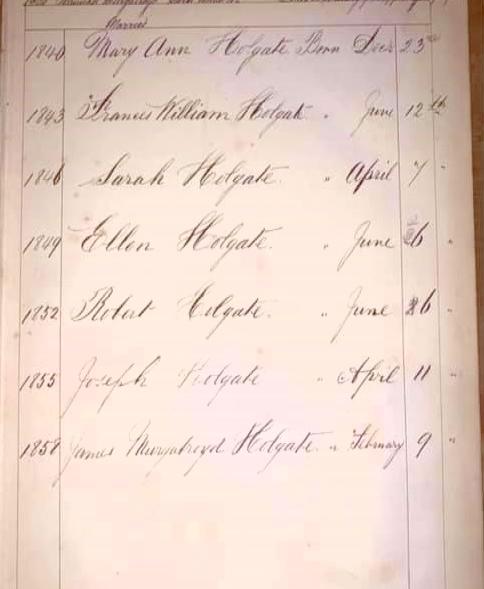 Married
1840 Mary Ann Holgate Born Decr 23rd
1843 Frances William Holgate " June 12th
1846 Sarah Holgate. " April 7 "
1849 Ellen Holgate. " June 6 "
1852 Robert Holgate. " June 26 "
1855 Joseph Holgate " April 11 "
1858 James Murgatroyd Holgate. " February 9 "